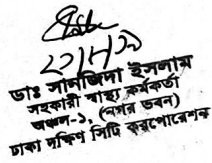 ২১/৮/১১
ডাঃ সানজিদা ইসলাম
সহকারী স্বাস্থ্য কর্মকর্তা
অঞ্চল-১, (নগর ভবন)
ঢাকা দক্ষিণ সিটি কর্পোরেশন